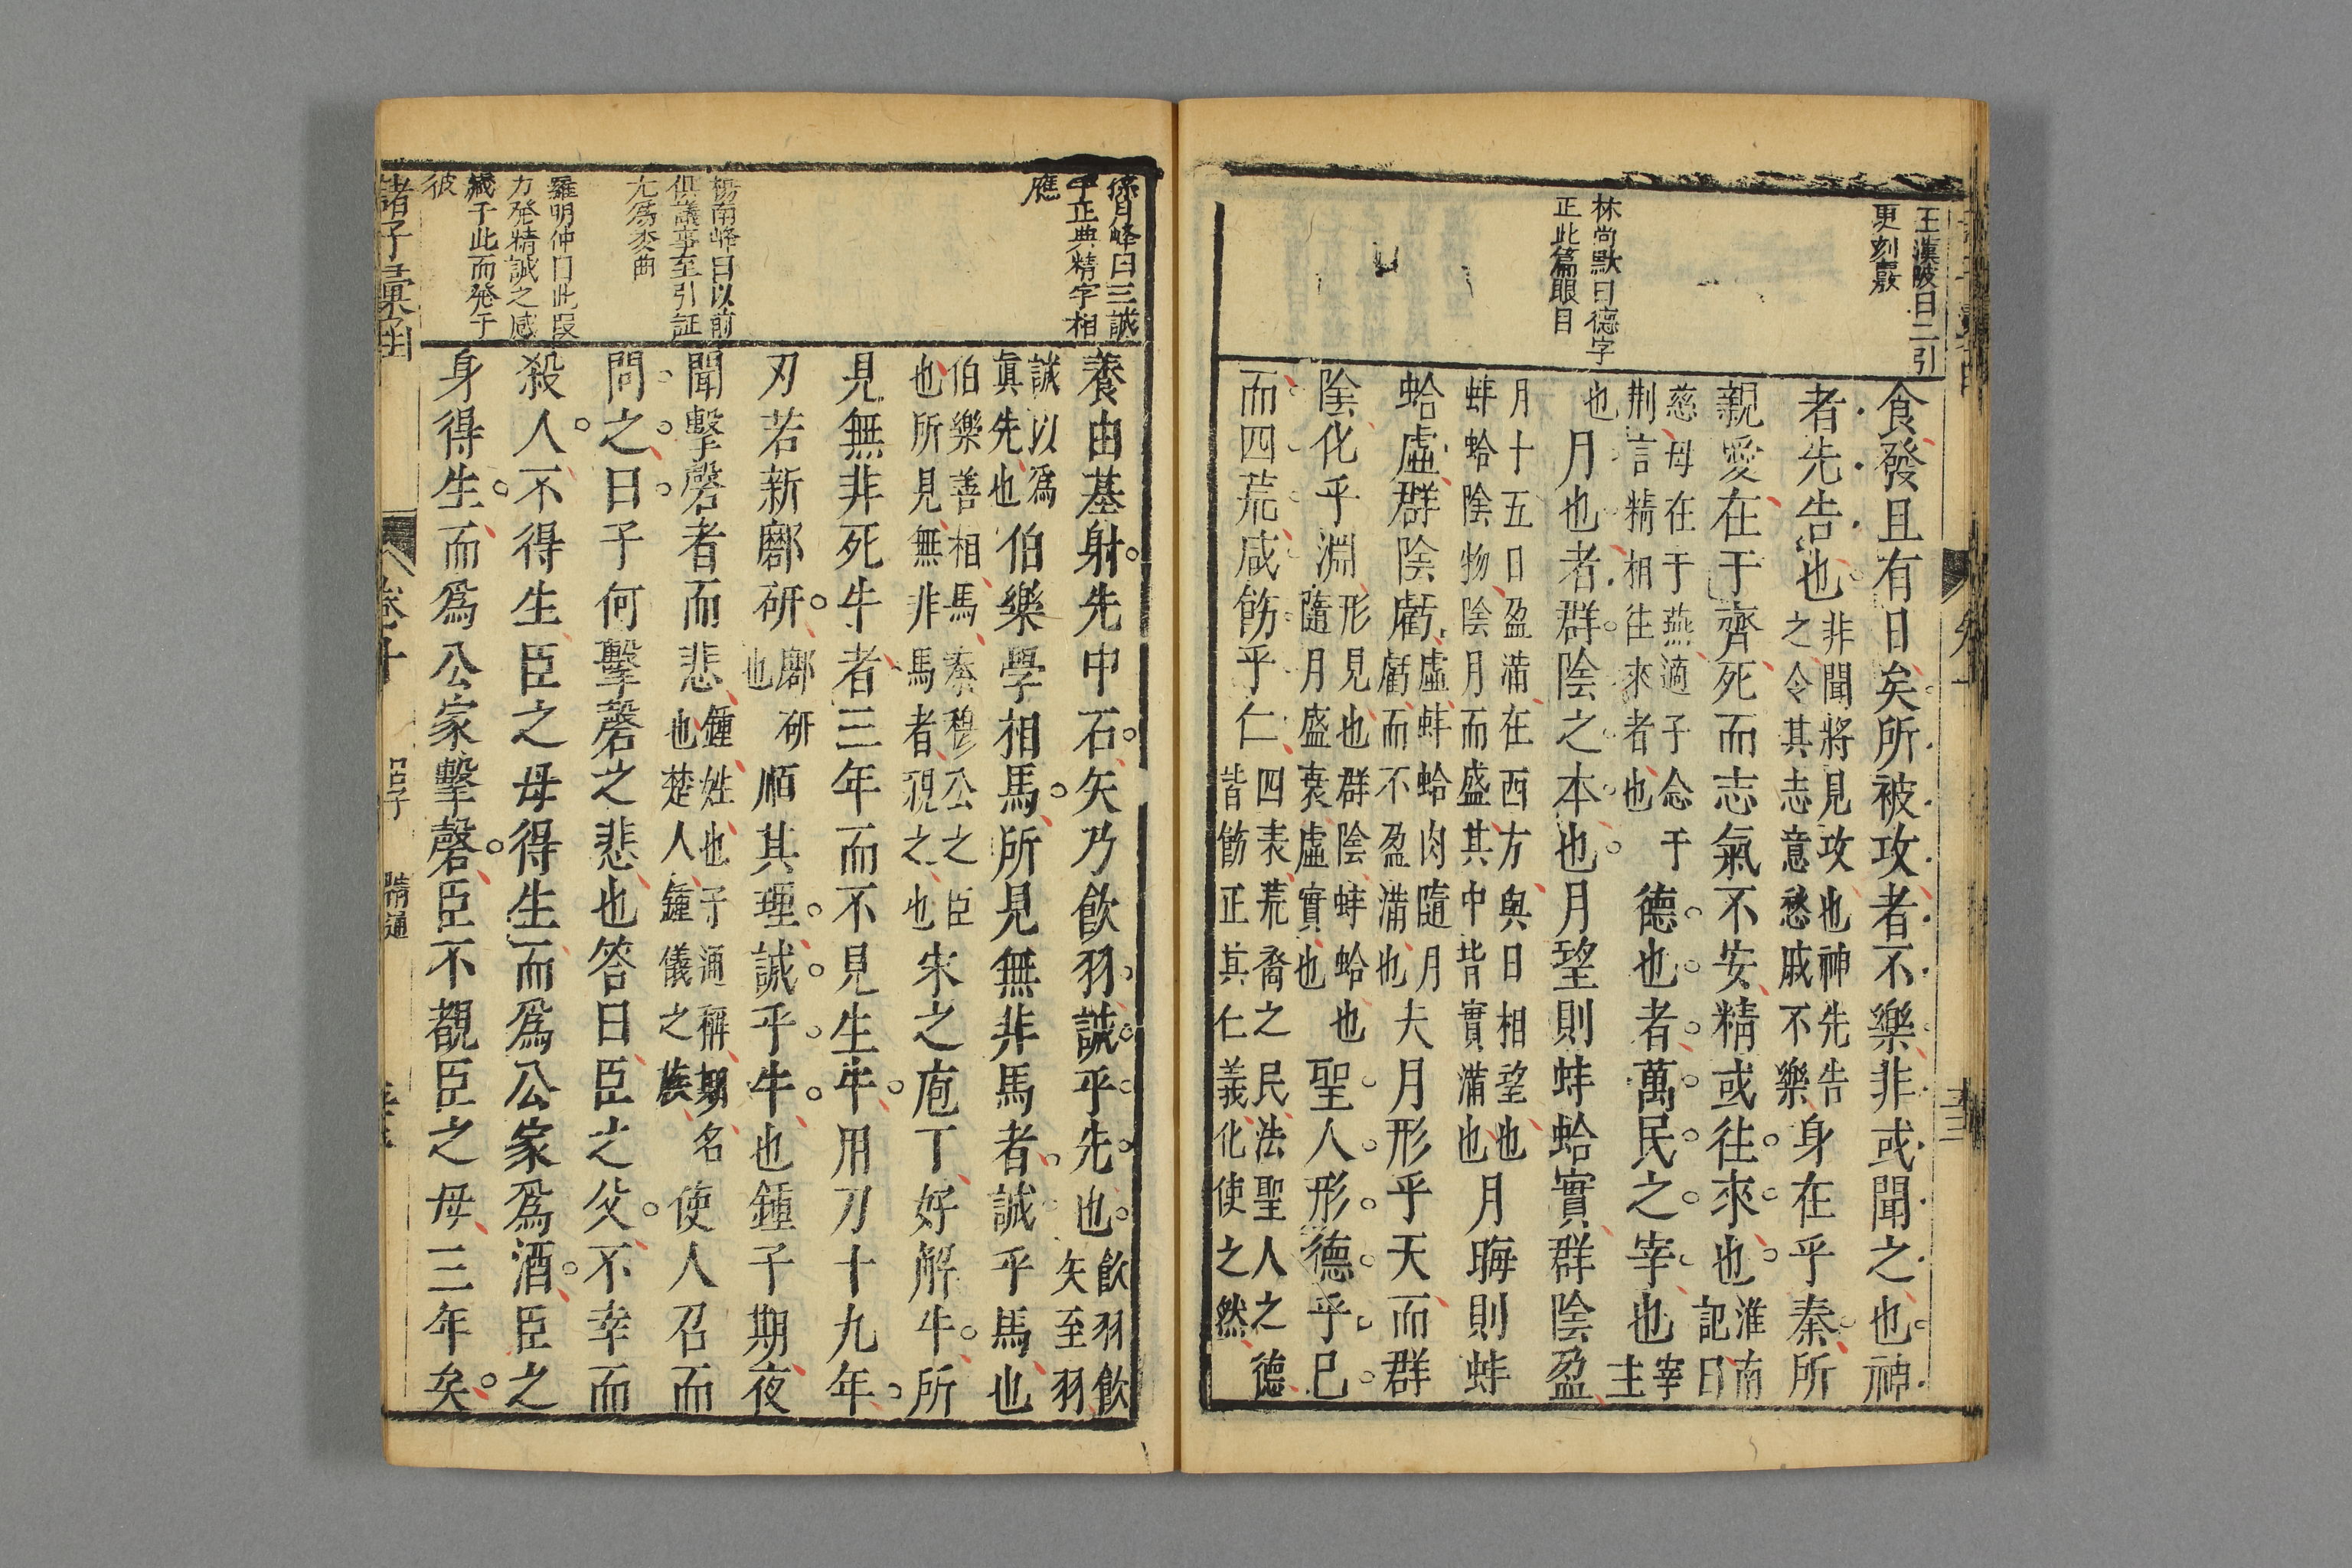 王渼陂曰二引
更刻覈
林尚默曰德字
正此篇眼目
食發且有日矣所被攻者不樂非或聞之也神
者先告也非聞將見攻也神先告
之令其志意愁戚不樂身在乎秦所
親愛在于齊死而志氣不安精或往來也淮南
記曰
慈母在于燕適子念于
荆言精相往來者也德也者萬民之宰也宰
主
也月也者群陰之本也月望則蚌蛤實群陰盈
月十五日盈滿在西方與日相望也
蚌蛤陰物陰月而盛其中皆實滿也月晦則蚌
蛤虛群陰虧虛蚌蛤肉隨月
虧而不盈滿也夫月形乎天而群
陰化乎淵形見也群陰蚌蛤也
隨月盛衰虛實也聖人形德乎己
而四荒咸飭乎仁四表荒裔之民法聖人之德
皆飭正其仁義化使之然
孫月峰曰三誠
乎正與精字相
應
楊南峰曰以前
俱議事至引証
尤爲委曲
羅明仲曰此段
力発精誠之感
藏于此而発于
彼
養由基射先中石矢乃飲羽誠乎先也飲羽飲
矢至羽
誠以爲
真先也伯樂學相馬所見無非馬者誠乎馬也
伯樂善相馬秦穆公之臣
也所見無非馬者視之也宋之庖丁好解牛所
見無非死牛者三年而不見生牛用刀十九年
刃若新鄜研鄜研
也順其理誠乎牛也鍾子期夜
聞擊磬者而悲鍾姓也子通稱期名
也楚人鍾儀之族使人召而
問之曰子何擊磬之悲也答曰臣之父不幸而
殺人不得生臣之母得生而爲公家爲酒臣之
身得生而爲公家擊磬臣不覩臣之母三年矣
諸子彙函
卷十
呂子
精通